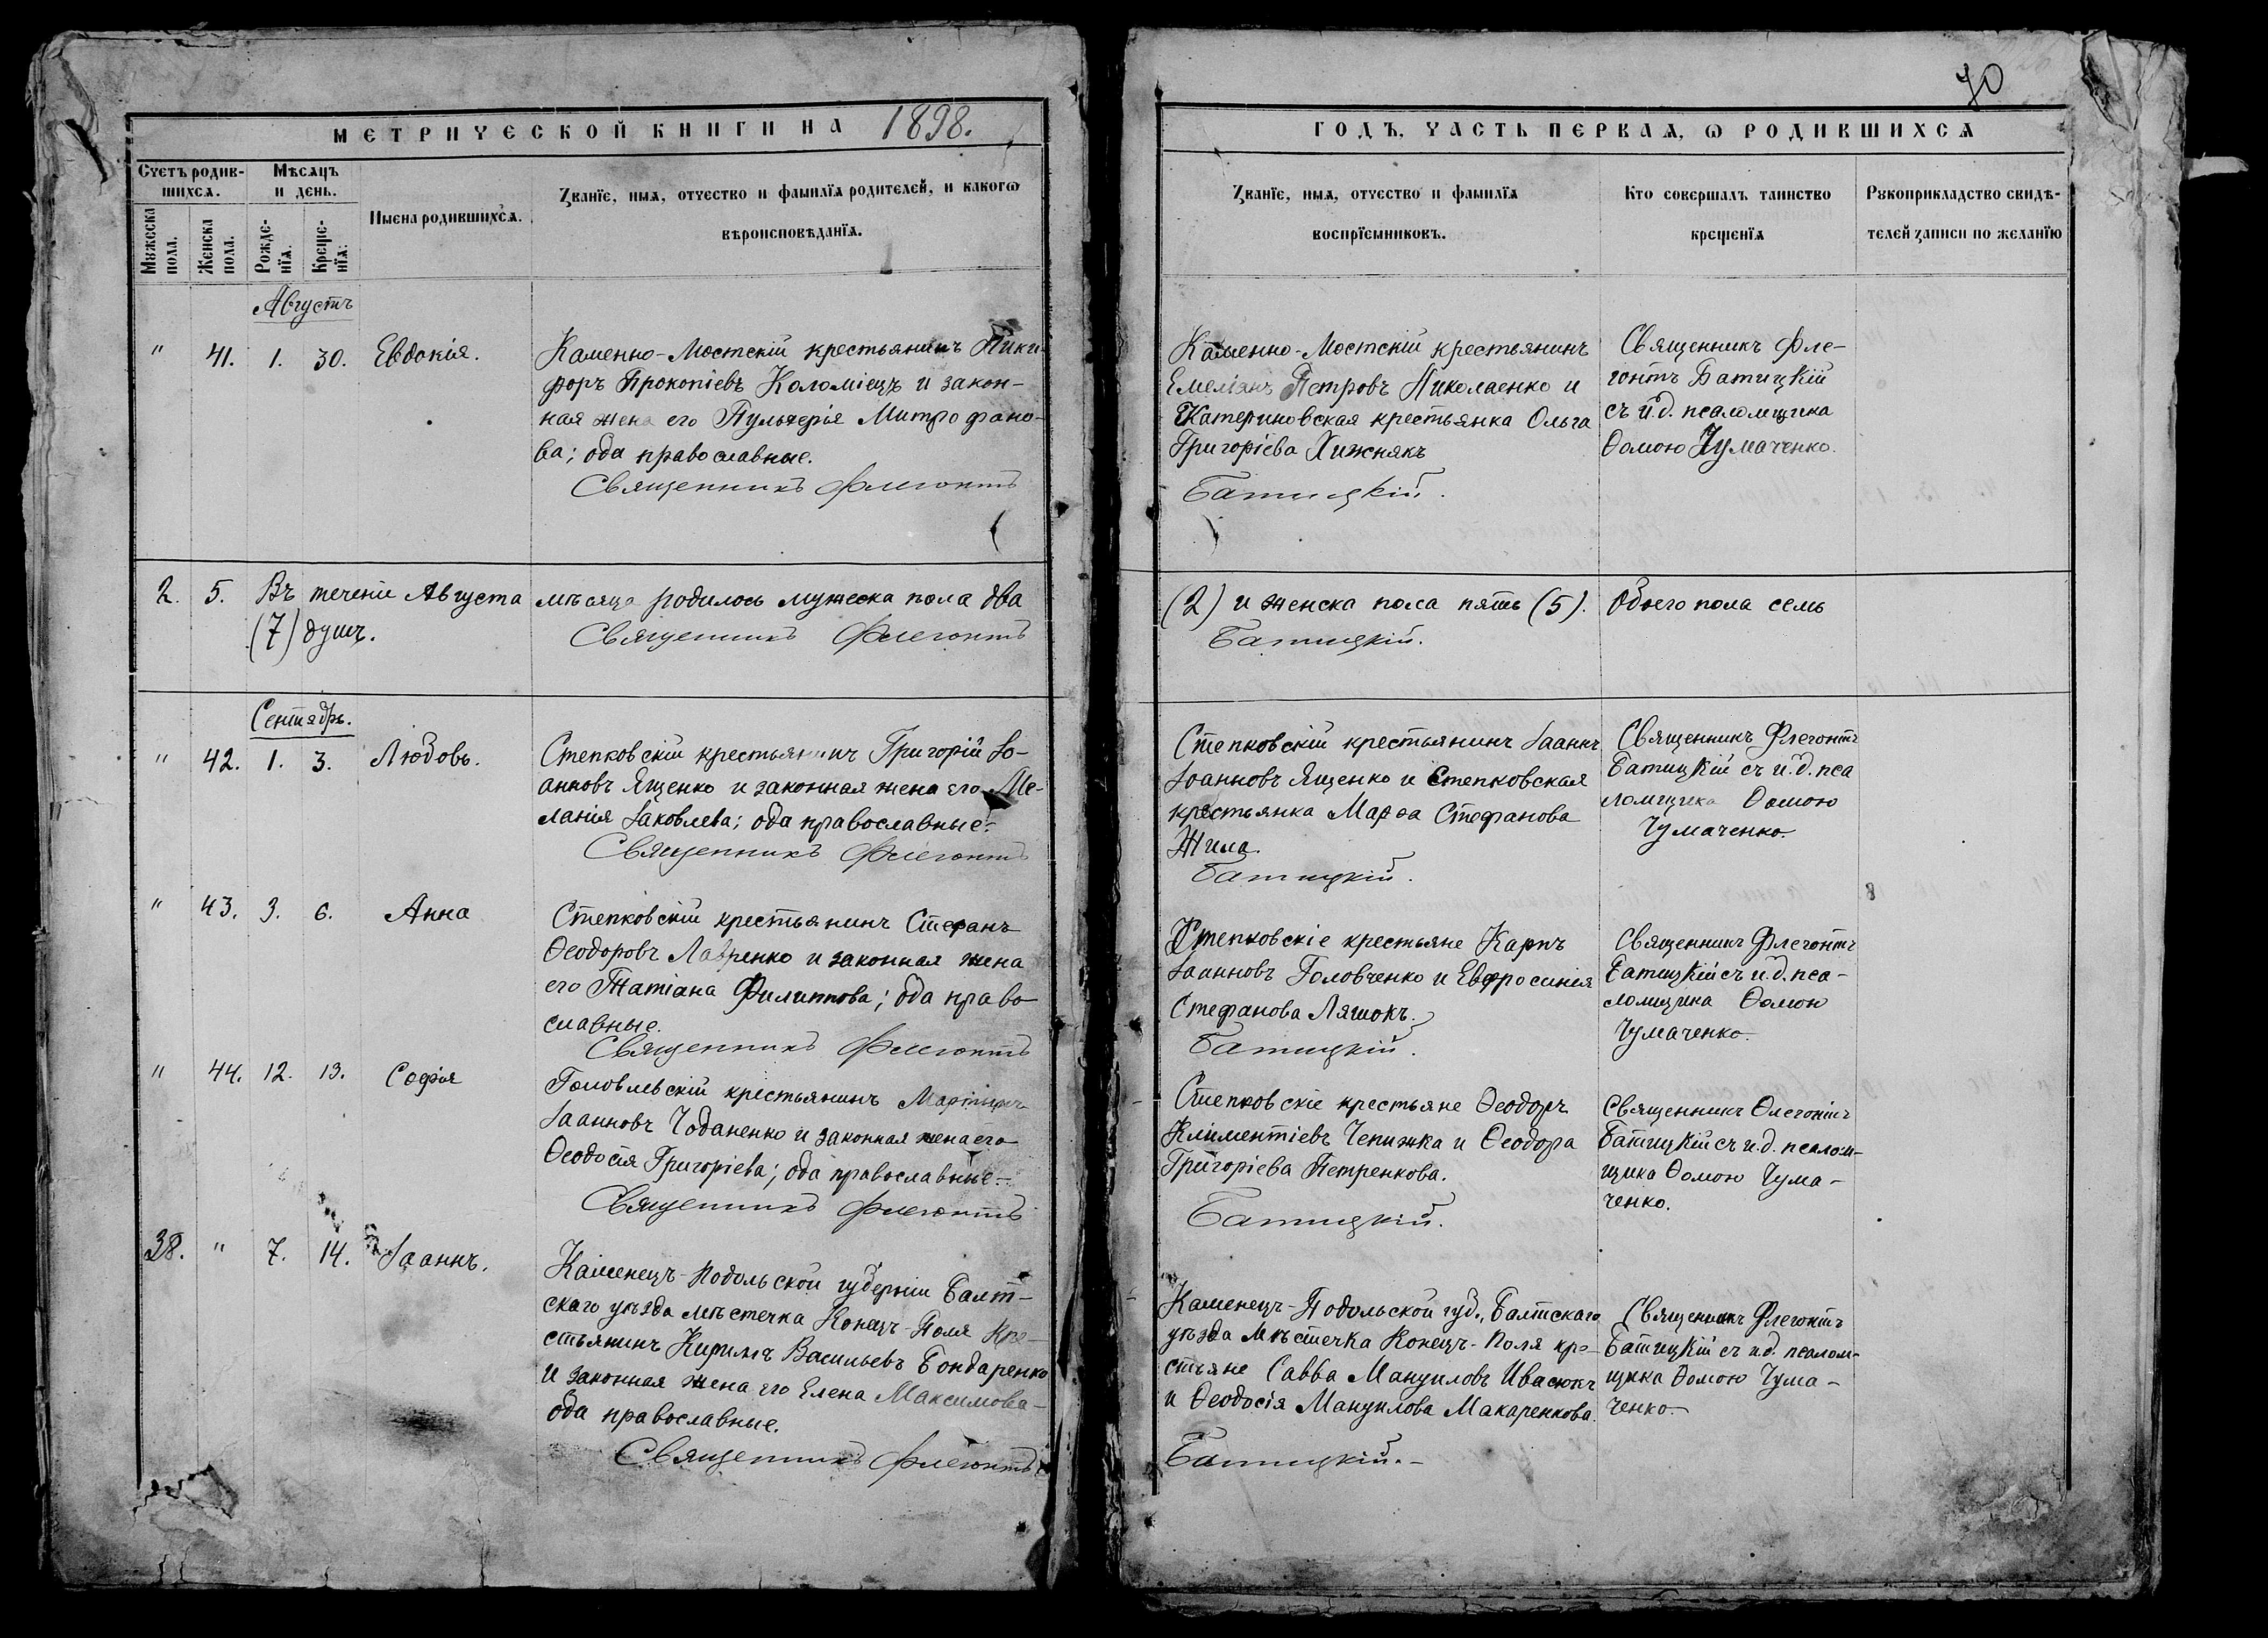 МЕТРИЧЕСКОЙ КНИГИ НА 1898.
Счетъ родив-
шихся.
Мѣсяцъ
и день.
Мужеска
пола.
Женска
пола.
Рожде-
нїя.
Креще-
нїя.
Имена родившихся.
Званїе, имя, отчество и фамилїя родителей, и какогѡ
вѣроисповѣданїя.
Августъ
" 41. 1. 30. Евдокія.
Каменно-Мостскій крестьянинъ Ники-
форъ Прокопіевъ Коломіецъ и закон-
ная жена его Пульхерія Митрофано-
ва; оба православные.
Священникъ Флегонтъ
2. 5. Въ теченіе Августа мѣсяца родилось мужеска пола два
(7) душъ.
Священникъ Флегонтъ
Сентябрь.
" 42. 1. 3. Любовь.
Степковскій крестьянинъ Григорій Іо-
анновъ Ященко и законная жена его Ме-
ланія Іаковлева; оба православные.
Священникъ Флегонтъ
" 43. 3. 6. Анна
Степковскій крестьянинъ Стефанъ
Ѳеодоровъ Лавренко и законная жена
его Татіана Филиппова; оба право
славные.
Священникъ Флегонтъ
" 44. 12. 13. Софія
крестьянинъ
Іоанновъ Чобаненко и законная жена его
Ѳеодосія Григоріева; оба православные.
Священникъ Флегонтъ
38. " 7. 14. Іоаннъ.
Каменецъ-Подольской губерніи Балт-
скаго уѣзда мѣстечка Конецъ-Поля кре-
стьянинъ Кириллъ Васильевъ Бондаренко
и законная жена его Елена Максимова
оба православные.
Священникъ Флегонтъ
70
ГОДЪ, ЧАСТЬ ПЕРВАЯ, Ѡ РОДИВШИХСЯ
Званїе, имя, отчество и фамилїя
воспрїемниковъ.
Кто совершалъ таинство
крещенїя
Рукоприкладство свидѣ-
телей записи по желанїю
Каменно-Мостскій крестьянинъ
Емеліанъ Петровъ Николаенко и
Екатериновская крестьянка Ольга
Григоріева Хижнякъ
Батицкій.
Священникъ Фле-
гонтъ Батицкій
съ и.д. псаломщика
Ѳомою Чумаченко.
(2) и женска пола пять (5). Обоего пола семь
Батицкій.
Степковскій крестьянинъ Іоаннъ
Іоанновъ Ященко и Степковская
крестьянка Марѳа Стефанова
Жила.
Батицкій.
Священникъ Флегонтъ
Батицкій съ и.д. пса
ломщика Ѳомою
Чумаченко.
Степковскіе крестьяне Карпъ
Іоанновъ Головченко и Евфросинія
Стефанова Ляшокъ.
Батицкій.
Священникъ Флегонтъ
Батицкій съ и.д. пса-
ломщика Ѳомою
Чумаченко.
Степковскіе крестьяне Ѳеодоръ
Климентіевъ Чепижка и Ѳеодора
Григоріева Петренкова.
Батицкій.
Священникъ Флегонтъ
Батицкій съ и.д. псалом-
щика Ѳомою Чума-
ченко.
Каменецъ-Подольской губ., Балтскаго
уѣзда мѣстечка Конецъ-Поля кре-
стьяне Савва Мануиловъ Ивасюкъ
и Ѳеодосія Мануилова Макаренкова.
Батицкій.
Священникъ Флегонтъ
Батицкій съ и.д. псалом-
щика Ѳомою Чума-
ченко.